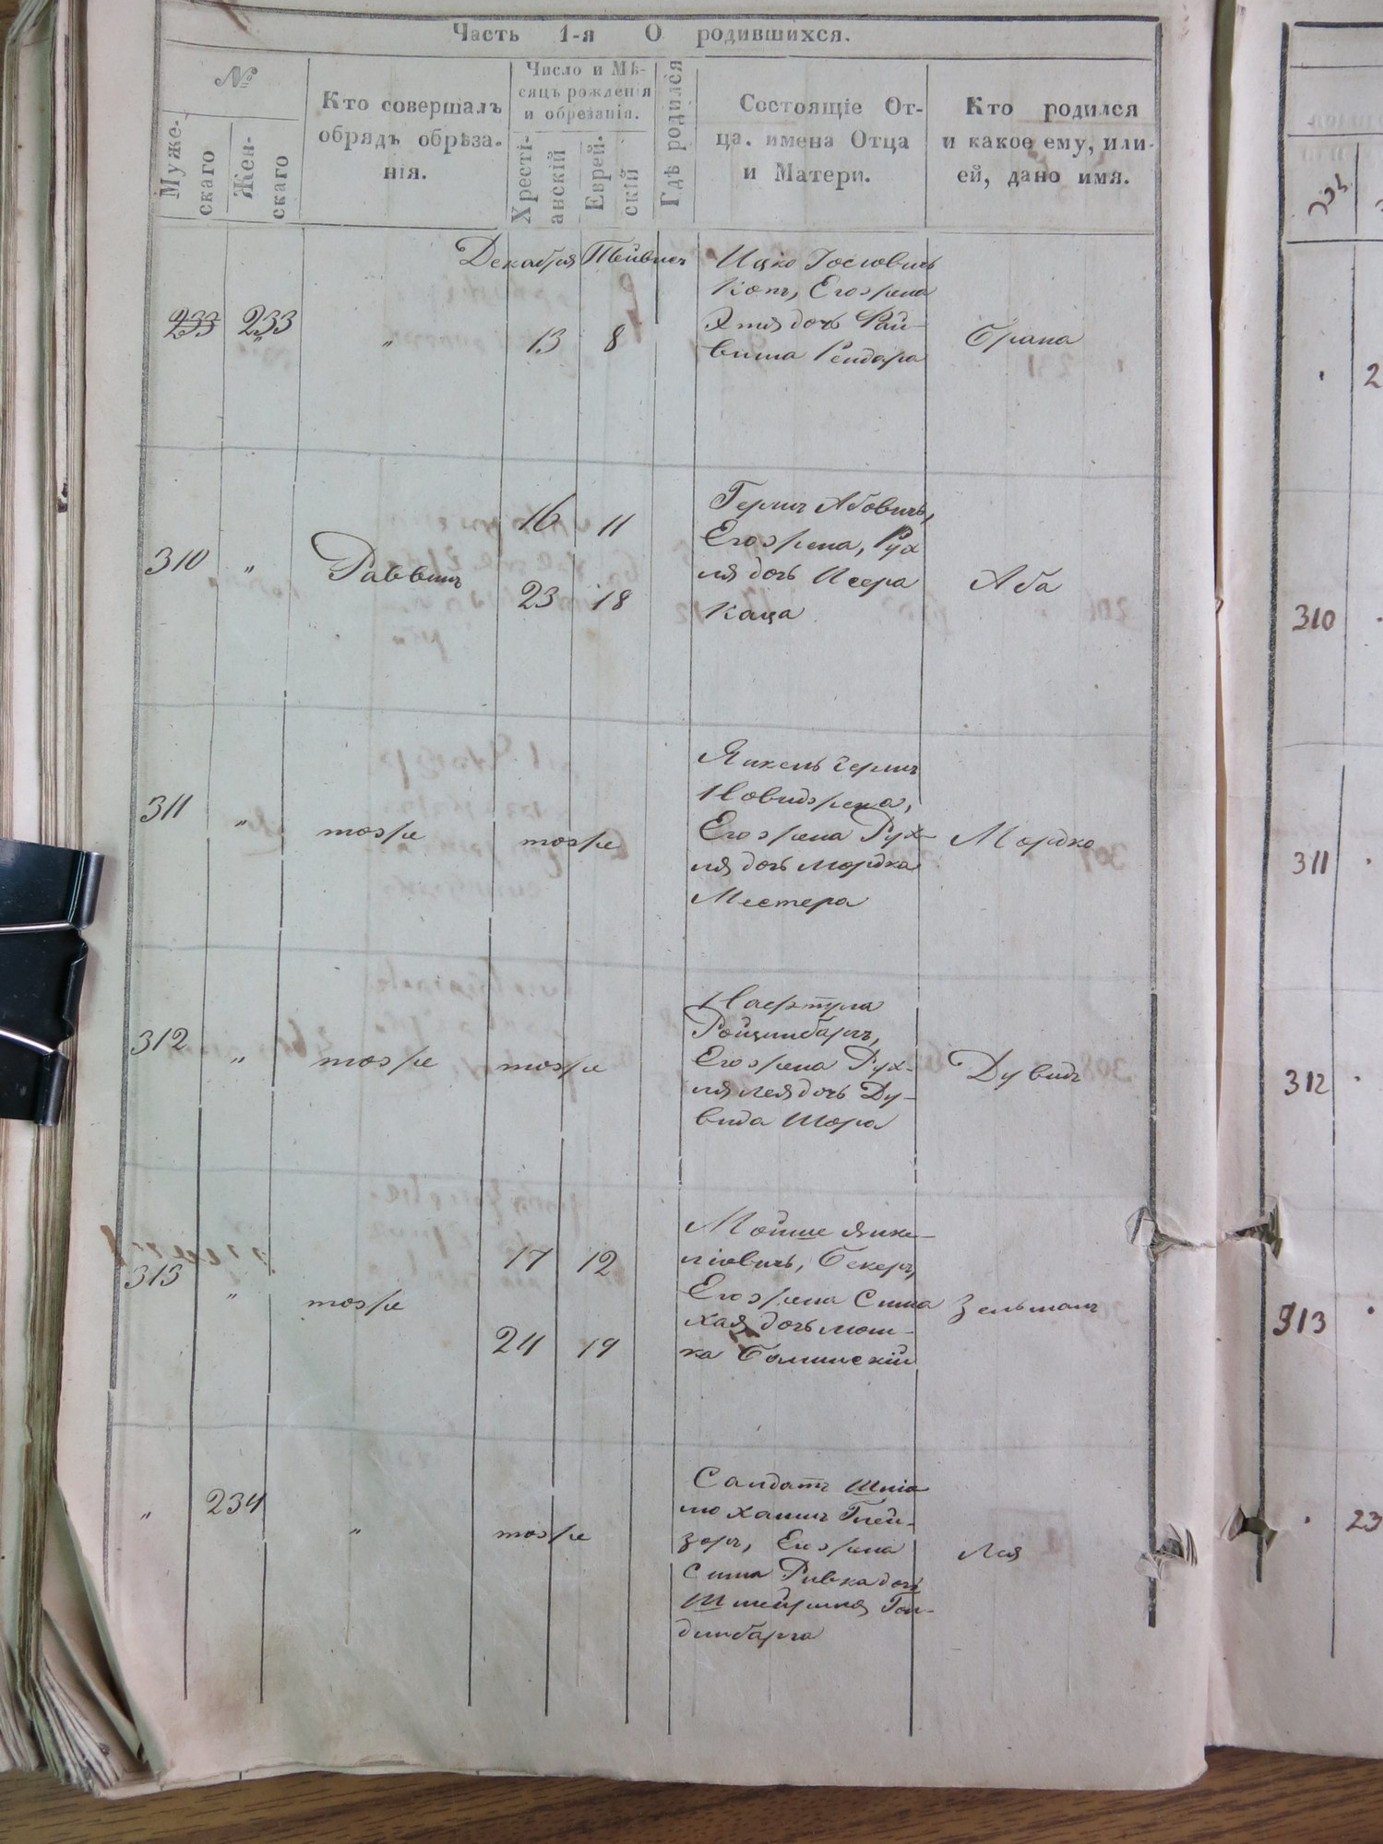 Часть 1-я О родившихся.
№
Муже-
скаго
Жен-
скаго
Кто совершалъ
обрядъ обрѣза-
нія.
Число и Мѣ-
сяцъ рожденія
и обрезанія.
Хресті-
анскій
Еврей-
скій
Гдѣ родился
Состоящіе От-
ца. имена Отца
и Матери.
Кто родился
и какое ему, или
ей, дано имя.
Декабря Тейвесъ
Ицко Іосіовичъ
Котъ, Его жена
233 233 " 13 8
Этля дочь Рай-
Брана
310 " Раввинъ
16 11
23 18
Гершъ Абовичъ,
Его жена, Рух
ля дочь Исера
Каца
Аба
311 " тоже тоже
Янкель Гершъ
Его жена Рух-
ля дочь Мордка
Местера
Мордко
312 " тоже тоже
Нафтула
Его жена Рух-
ля Лея дочь Ду-
вида Шора
Дувидъ
313 " тоже
17 12
24 19
Мойше Янке-
ліовичъ, Бекеръ,
Его жена Сима
Хая дочь Мош-
ка
Зельманъ
" 234 " тоже
Салдатъ Шліо
мо Хаимъ Глей-
зеръ, Его жена
Сима Ривка дочь
Гол-
динбарга
Лея
310
311
312
313
23